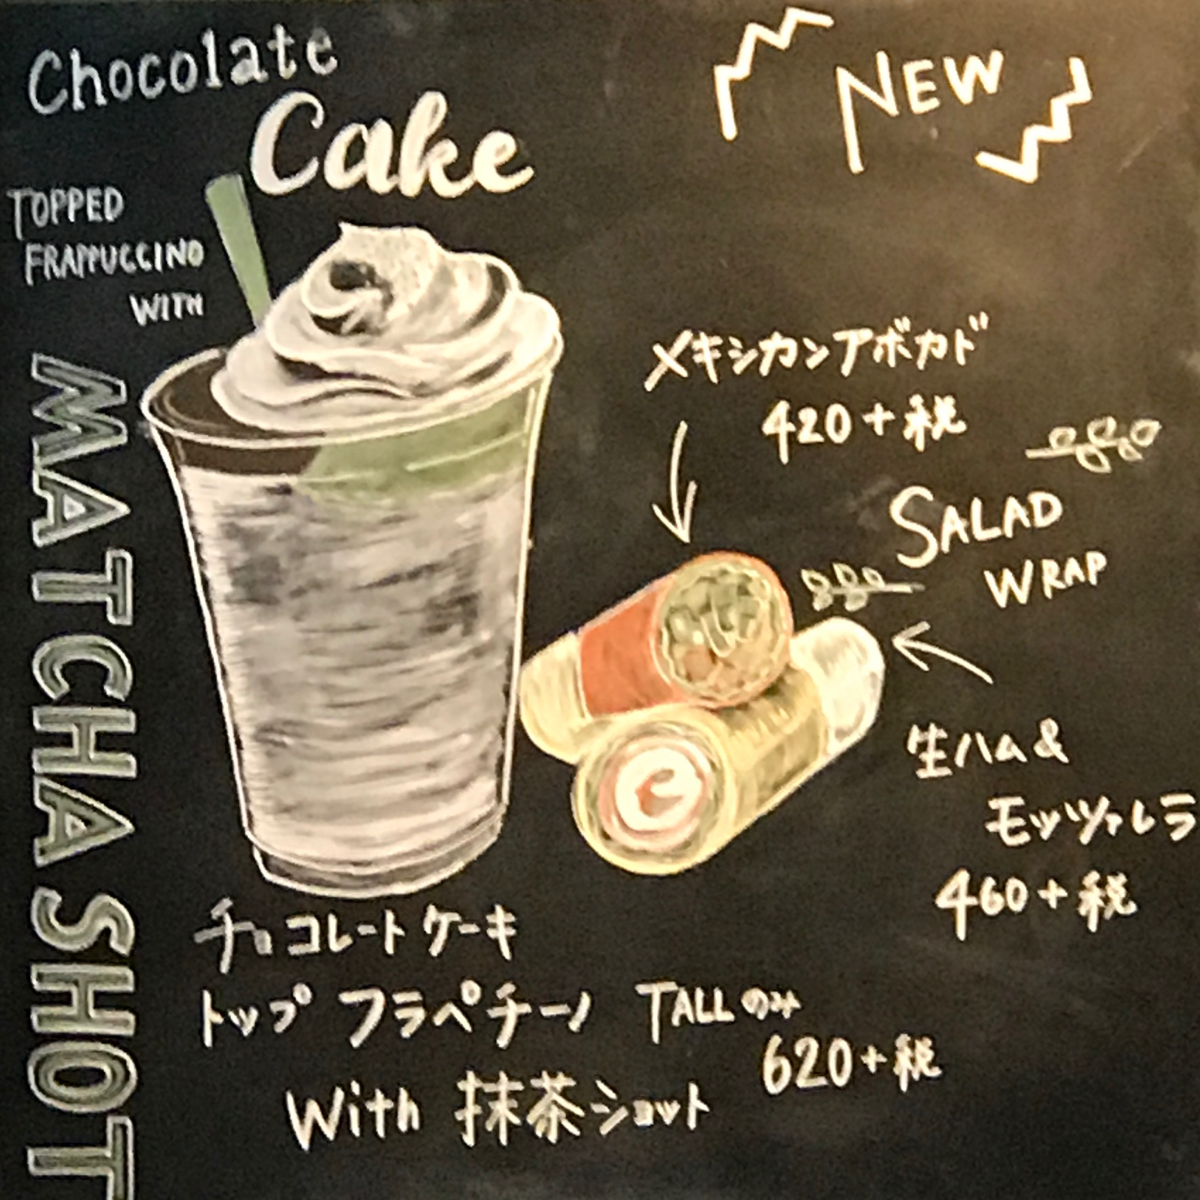 Chocolate
Cake
TOPPED
FRAPPUCCINO
WITH
MATCHA SHOT
NEW
メキシカンアボカド
420+税
SALAD
WRAP
生ハム&
モッツァレラ
460+税
チョコレートケーキ
トップ フラペチーノ TALLのみ
620+税
With 抹茶ショット